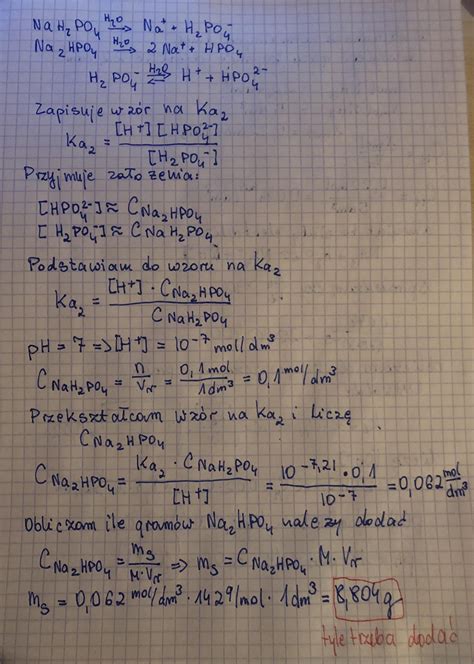 NaH₂PO₄ →(H₂O) Na⁺ + H₂PO₄⁻
Na₂HPO₄ →(H₂O) 2Na⁺ + HPO₄
H₂PO₄⁻ ⇌(H₂O) H⁺ + HPO₄²⁻
Zapisuje wzór na Ka₂
Ka₂ = [H⁺][HPO₄²⁻] / [H₂PO₄⁻]
Przyjmuje założenia:
[HPO₄²⁻] ≈ C Na₂HPO₄
[H₂PO₄⁻] ≈ C NaH₂PO₄
Podstawiam do wzoru na Ka₂
Ka₂ = [H⁺] · C Na₂HPO₄ / C NaH₂PO₄
pH = 7 => [H⁺] = 10⁻⁷ mol/dm³
C NaH₂PO₄ = n / Vr = 0,1 mol / 1dm³ = 0,1 mol/dm³
Przekształcam wzór na Ka₂ i liczę
C Na₂HPO₄
C Na₂HPO₄ = Ka₂ · C NaH₂PO₄ / [H⁺] = 10⁻⁷,²¹ · 0,1 / 10⁻⁷ = 0,062 mol/dm³
Obliczam ile gramów Na₂HPO₄ należy dodać
C Na₂HPO₄ = ms / M·Vr => ms = C Na₂HPO₄ · M · Vr
ms = 0,062 mol/dm³ · 142 g/mol · 1dm³ = 8,804g
tyle trzeba dodać